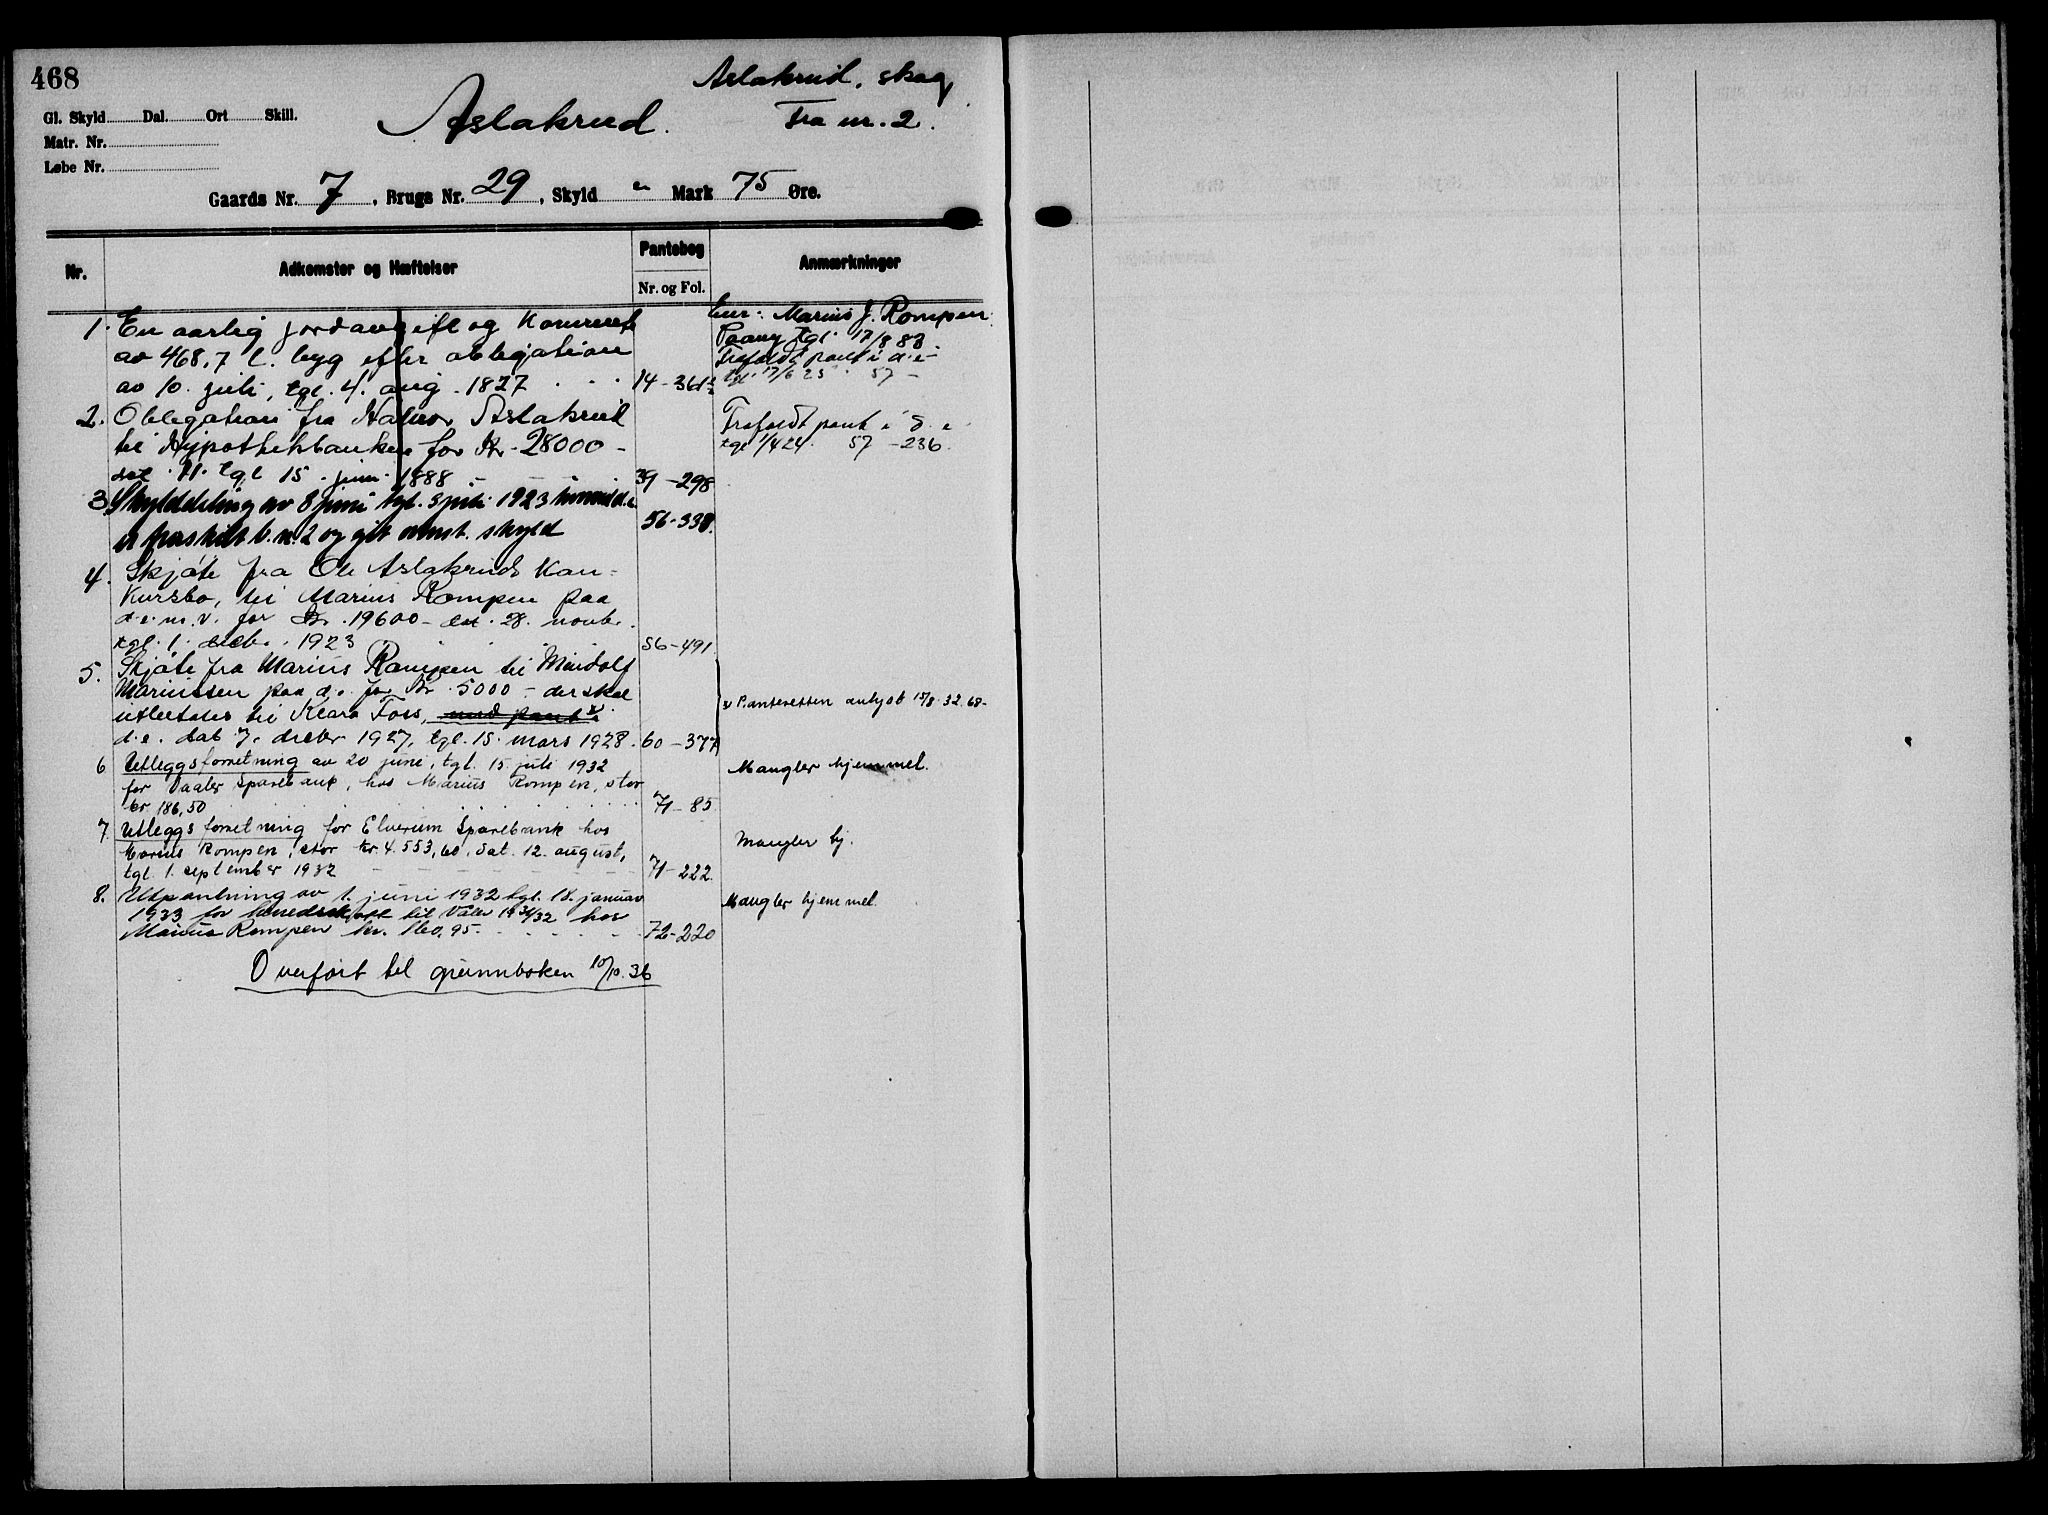 468
Aslakrud, skog
Fra nr. 2.
Aslakrud.
Gl. Skyld Dal. Ort Skill.
Matr. Nr.
Løbe Nr.
Gaards Nr. 7, Brugs Nr. 29, Skyld " Mark 75 Øre.
Nr. Adkomster og Hæftelser Pantebog Nr. og Fol. Anmærkninger
1. En aarlig jordavgift og
av 468,7 l. byg efter obligation
av 10. juli, tgl. 4. aug. 1827 14-361
Eier: Marius J. Rompen
Paany tgl. 17/8 83
Frafaldt pant i d. e.
tgl. 17/6 25 57 -
2. Obligation fra Halvor Aslakrud
til Hypothekbanken for Kr. 28000 -
dat. 11. tgl 15. juni 1888 39-298
Frafaldt pant i d. e.
tgl 1/4 24. 57-236.
3. Skylddeling av 8 juni tgl. 3 juli 1923 hvorved d. e.
er fraskilt b. n. 2 og git ovenst. skyld 56-338.
4. Skjøte fra Ole Aslakruds Kon=
kursbo, til Marius Rompen paa
d. e. m. v. for Kr. 19600 - dat. 28. novbr.
tgl. 1. decbr. 1923 56-491.
5. Skjøte fra Marius Rompen til Mindolf
Mariussen paa d. e. for Kr. 5000 - der skal
utbetales til Klara Foss, med pant x) i
d. e. dat 7. decbr 1927, tgl. 15. mars 1928. 60-377
x) Panteretten avlyst 15/8. 32. 68-
6 Utleggsforretning av 20 juni, tgl. 15. juli 1932
for Vaaler Sparebank, hos Marius Rompen, stor
kr 186,50 71-85.
Mangler hjemmel.
7. Utleggsforretning for Elverum Sparebank hos
Marius Rompen, stor kr. 4.553,60, dat. 12. august,
tgl. 1. september 1932 71-222.
Mangler hj.
8. Utpantning av 1. juni 1932 tgl. 18. januar
1933 for herredskatt til Våler 1931/32 hos
Marius Rompen kr. 160,95. 72-220
Mangler hjemmel.
Overført til grunnboken 10/10. 36